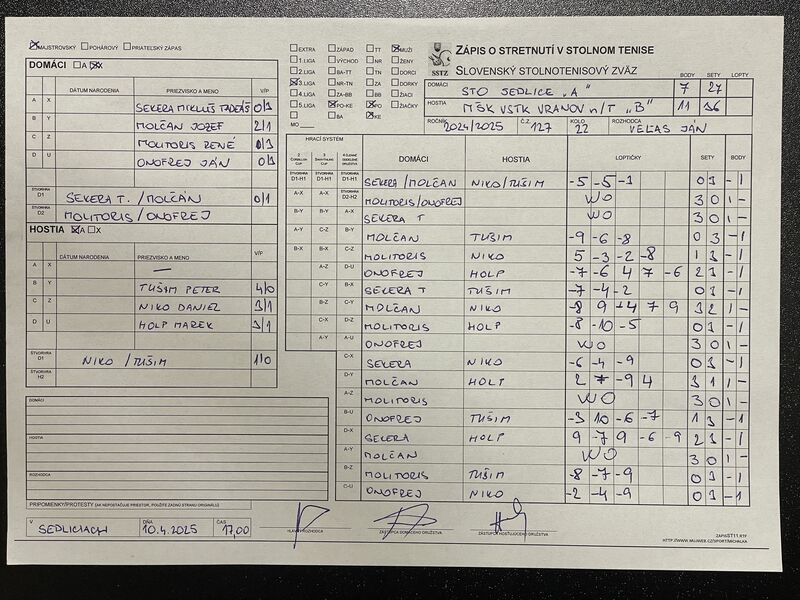 MAJSTROVSKÝ POHÁROVÝ PRIATEĽSKÝ ZÁPAS
DOMÁCI A X
DÁTUM NARODENIA PRIEZVISKO A MENO V/P
A X SEKERA MIKLUŠ TADEÁŠ 0/1
B Y MOLČAN JOZEF 2/1
C Z MOLITORIS RENÉ 0/1
D U ONOFREJ JÁN 0/1
ŠTVORHRA D1 SEKERA T. /MOLČAN 0/1
ŠTVORHRA D2 MOLITORIS/ONOFREJ
HOSTIA A X
DÁTUM NARODENIA PRIEZVISKO A MENO V/P
A X —
B Y TUŠIM PETER 4/0
C Z NIKO DANIEL 3/1
D U HOLP MAREK 3/1
ŠTVORHRA D1 NIKO /TUŠIM 1/0
ŠTVORHRA H2
DOMÁCI
HOSTIA
ROZHODCA
PRIPOMIENKY/PROTESTY (AK NEPOSTAČUJE PRIESTOR, POUŽITE ZADNÚ STRANU ORIGINÁLU)
V SEDLICIACH DŇA 10.4.2025 ČAS 17,00
EXTRA ZÁPAD TT MUŽI
1.LIGA VÝCHOD NR ŽENY
2.LIGA BA-TT TN DORCI
3.LIGA NR-TN ZA DORKY
4.LIGA ZA-BB BB ŽIACI
5.LIGA PO-KE PO ŽIAČKY
MO BA KE
SSTZ
ZÁPIS O STRETNUTÍ V STOLNOM TENISE
SLOVENSKÝ STOLNOTENISOVÝ ZVÄZ
BODY SETY LOPTY
DOMÁCI STO SEDLICE "A" 7 27
HOSTIA MŠK VSTK VRANOV n/T "B" 11 36
ROČNÍK 2024/2025 Č.Z. 127 KOLO 22 ROZHODCA VEĽAS JÁN
HRACÍ SYSTÉM
DOMÁCI HOSTIA LOPTIČKY SETY BODY
D1-H1 D1-H1 D1-H1 SEKERA /MOLČAN NIKO/TUŠIM -5 -5 -1 0 3 -1
A-X A-X D2-H2 MOLITORIS/ONOFREJ WO 3 0 1-
B-Y B-Y A-X SEKERA T WO 3 0 1-
A-Y C-Z B-Y MOLČAN TUŠIM -9 -6 -8 0 3 -1
B-X B-X C-Z MOLITORIS NIKO 5 -3 -2 -8 1 3 -1
A-Z D-U ONOFREJ HOLP -7 -6 4 7 -6 2 3 -1
C-Y SEKERA T TUŠIM -7 -4 -2 0 3 -1
B-Z MOLČAN NIKO 3 2 1-
D-Z MOLITORIS HOLP -8 -10 -5 0 3 -1
A-Y A-U ONOFREJ WO 3 0 1-
C-X SEKERA NIKO -6 -4 -9 0 3 -1
D-Y MOLČAN HOLP 2 7 -9 4 3 1 1-
A-Z MOLITORIS WO 3 0 1-
B-U ONOFREJ TUŠIM -3 10 -6 -7 1 3 -1
D-X SEKERA HOLP 9 -7 9 -6 -9 2 3 -1
A-Y MOLČAN WO 3 0 1-
B-Z MOLITORIS TUŠIM -8 -7 -9 0 3 -1
C-U ONOFREJ NIKO -2 -4 -9 0 3 -1
HLAVNÝ ROZHODCA ZÁSTUPCA DOMÁCEHO DRUŽSTVA ZÁSTUPCA HOSŤUJÚCEHO DRUŽSTVA
ZAPISST11.RTF
HTTP://WWW.MUJWEB.CZ/SPORT/MICHALKA